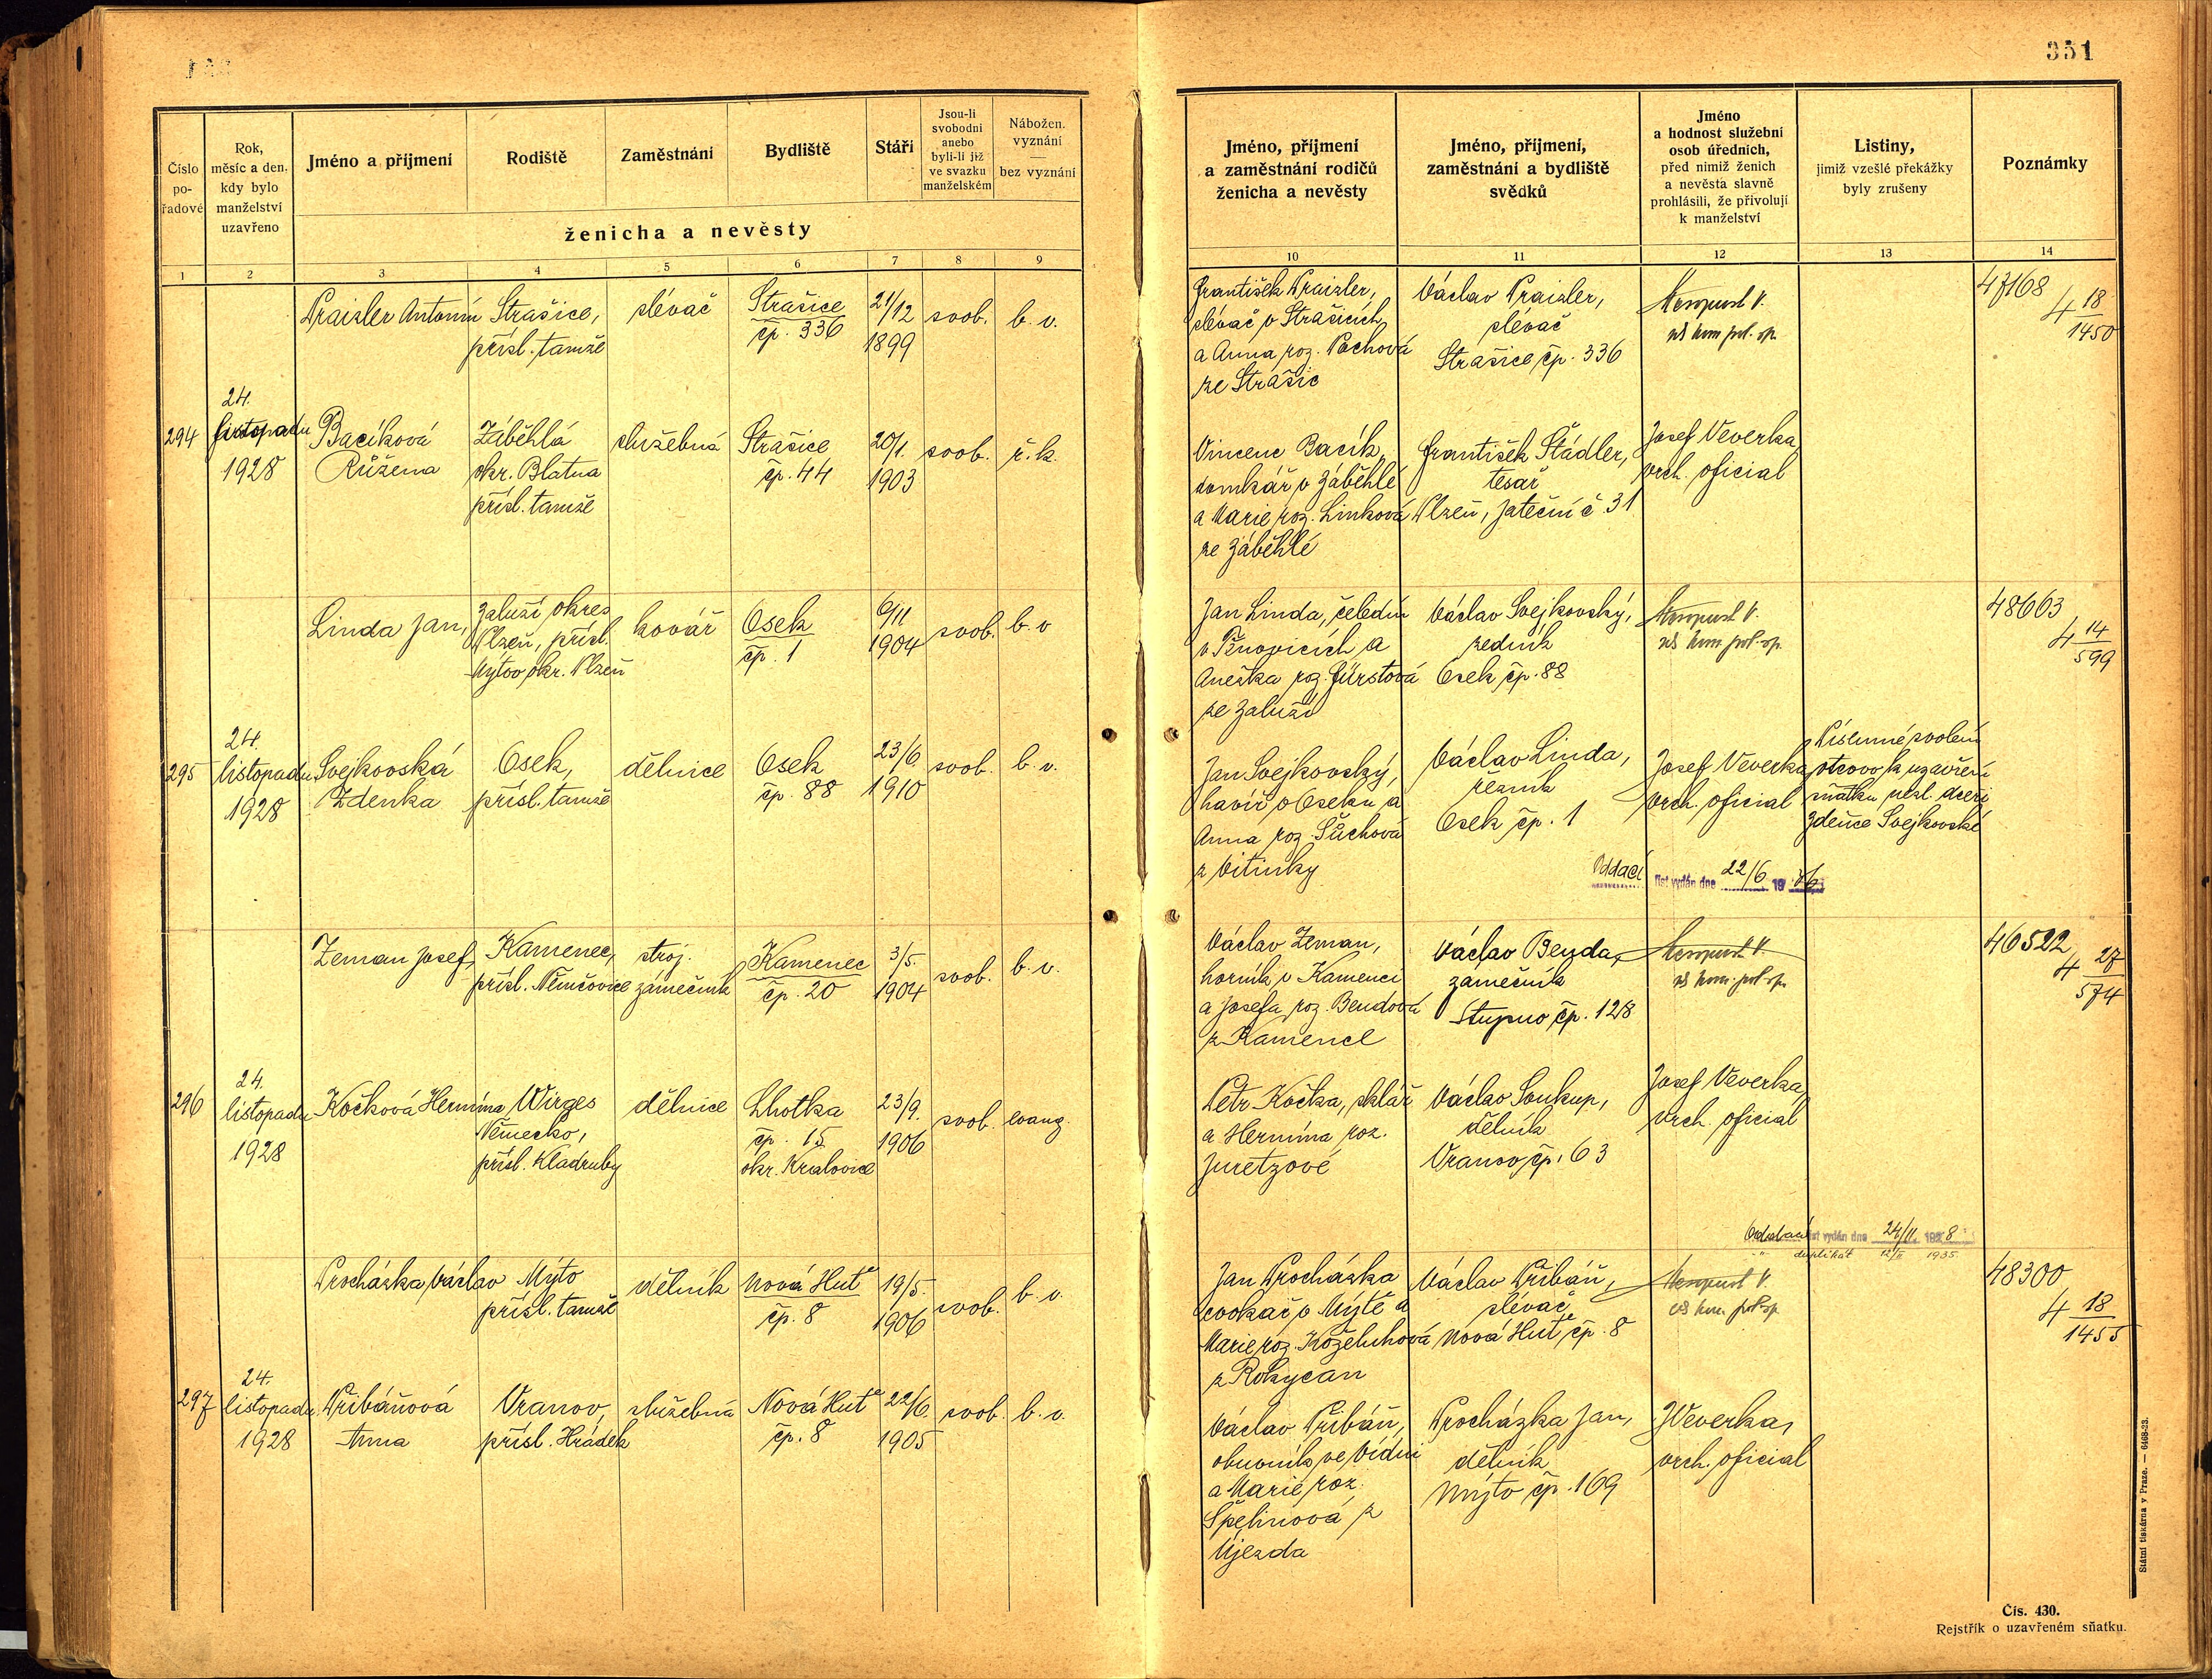 351
Číslo pořadové
Rok, měsíc a den, kdy bylo manželství uzavřeno
Jméno a příjmení
Rodiště
Zaměstnání
Bydliště
Stáří
Jsou-li svobodni anebo byli-li již ve svazku manželském
Nábožen. vyznání — bez vyznání
ženicha a nevěsty
1 2 3 4 5 6 7 8 9
Jméno, příjmení a zaměstnání rodičů ženicha a nevěsty
Jméno, příjmení, zaměstnání a bydliště svědků
Jméno a hodnost služební osob úředních, před nimiž ženich a nevěsta slavně prohlásili, že přivolují k manželství
Listiny, jimiž vzešlé překážky byly zrušeny
Poznámky
10 11 12 13 14
Praizler Antonín
Strašice,
přísl. tamže
slévač
Strašice
čp. 336
21/12
1899
svob.
b. v.
František Praizler,
slévač v Strašicích
a Anna roz. Pachová
ze Strašic
Václav Praizler,
slévač
Strašice čp. 336
47168
4 18/1450
294
24.
listopadu
1928
Bacíková
Růžena
Záběhlá
okr. Blatna
přísl. tamže
služebná
Strašice
čp. 44
20/1.
1903
svob.
ř. k.
Vincenc Bacík,
domkář v Záběhlé
a Marie roz. Linková
ze Záběhlé
František Štádler,
tesař
Plzeň, Jateční č. 31
Josef Veverka,
vrch. oficial
Linda Jan,
Zaluží okres
Plzeň, přísl.
Mýtov okr. Plzeň
kovář
Osek
čp. 1
6/11
1904
svob.
b. v
Jan Linda, čeledín
v Těnovicích a
Anežka roz. Fürstová
ze Zaluží
Václav Svejkovský,
zedník
Osek čp. 88
48663
4 14/599
295
24.
listopadu
1928
Svejkovská
Zdenka
Osek,
přísl. tamže
dělnice
Osek
čp. 88
23/6
1910
svob.
b. v.
Jan Svejkovský,
havíř v Oseku a
Anna roz. Šůchová
z Vitinky
Václav Linda,
řezník
Osek čp. 1
Josef Veverka,
vrch. oficial
Písemné svolení
otcovo k uzavření
sňatku nezl. dceři
Zdeňce Svejkovské
Oddací list vydán dne 22/6 19
Zeman Josef,
Kamenec,
přísl. Němčovice
stroj.
zámečník
Kamenec
čp. 20
3/5.
1904
svob.
b. v.
Václav Zeman,
horník v Kamenci
a Josefa roz. Bendová
z Kamence
Václav Benda,
zámečník
Stupno čp. 128
46522
4 27/574
296
24.
listopadu
1928
Kočková Hermína
Wirges
Německo,
přísl. Kladruby
dělnice
Lhotka
čp. 15
okr. Kralovice
23/9.
1906
svob.
evang.
Petr Kočka, sklář
a Hermína roz.
Juretzové
Václav Soukup,
dělník
Vranov čp. 63
Josef Veverka,
vrch. oficial
Oddací list vydán dne 24/11. 1928
" duplikát 12/II 1935
Procházka Václav
Mýto
přísl. tamže
dělník
Nová Huť
čp. 8
19/5.
1906
svob.
b. v.
Jan Procházka
cvokař v Mýtě a
Marie roz. Koželuhová
z Rokycan
Václav Přibáň,
slévač
Nová Huť čp. 8
48300
4 18/1455
297
24.
listopadu
1928
Přibáňová
Anna
Vranov,
přísl. Hrádek
služebná
Nová Huť
čp. 8
22/6
1905
svob.
b. v.
Václav Přibáň,
obuvník ve Vídni
a Marie roz.
Špelinová z
Újezda
Procházka Jan,
dělník
Mýto čp. 169
JVeverka,
vrch. oficial
Státní tiskárna v Praze. — 6468-23.
Čís. 430.
Rejstřík o uzavřeném sňatku.